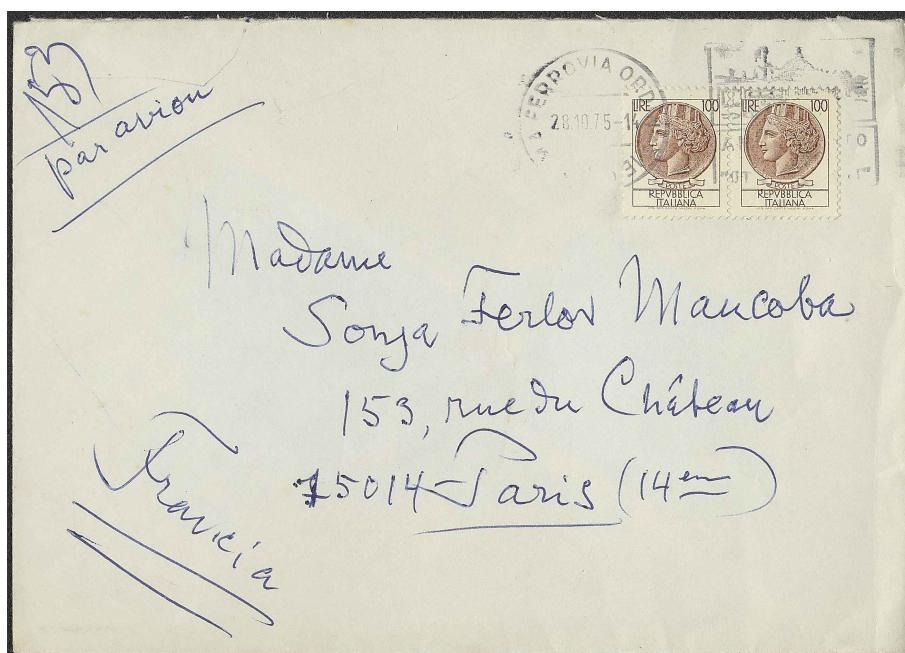 153
par avion
FERROVIA ORD
28.10.75-14
LIRE 100
LIRE 100
POSTE
POSTE
REPVBBLICA
ITALIANA
REPVBBLICA
ITALIANA
Madame
Sonja Ferlov Mancoba
153, rue du Château
75014-Paris (14em)
Francia